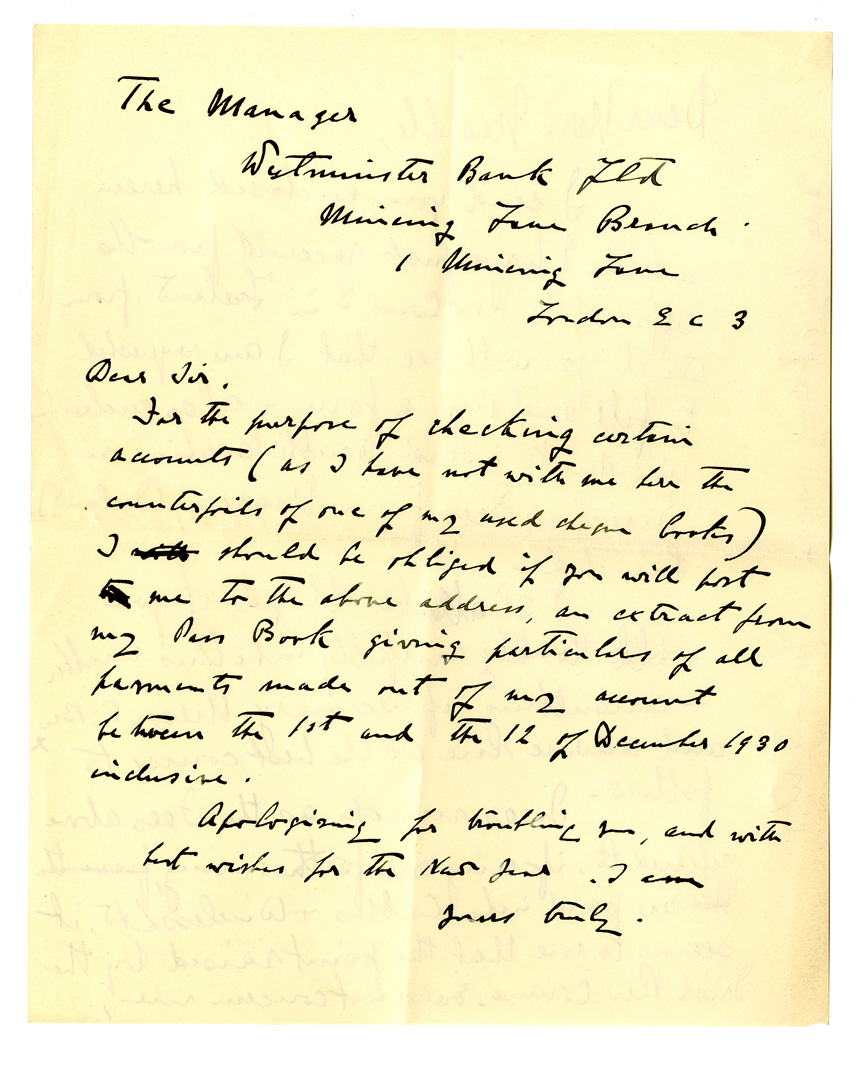 The Manager
Westminster Bank Ltd
Mincing Lane Branch.
1 Mincing Lane
London E C 3
Dear Sir,
For the purpose of checking certain
accounts (as I have not with me here the
counterfoils of one of my used cheque books)
I should be obliged if you will post
me to the above address, an extract from
my Pass Book giving particulars of all
payments made out of my account
between the 1st and the 12 of December 1930
inclusive.
Apologising for troubling you, and with
best wishes for the New Year. I am
yours truly.